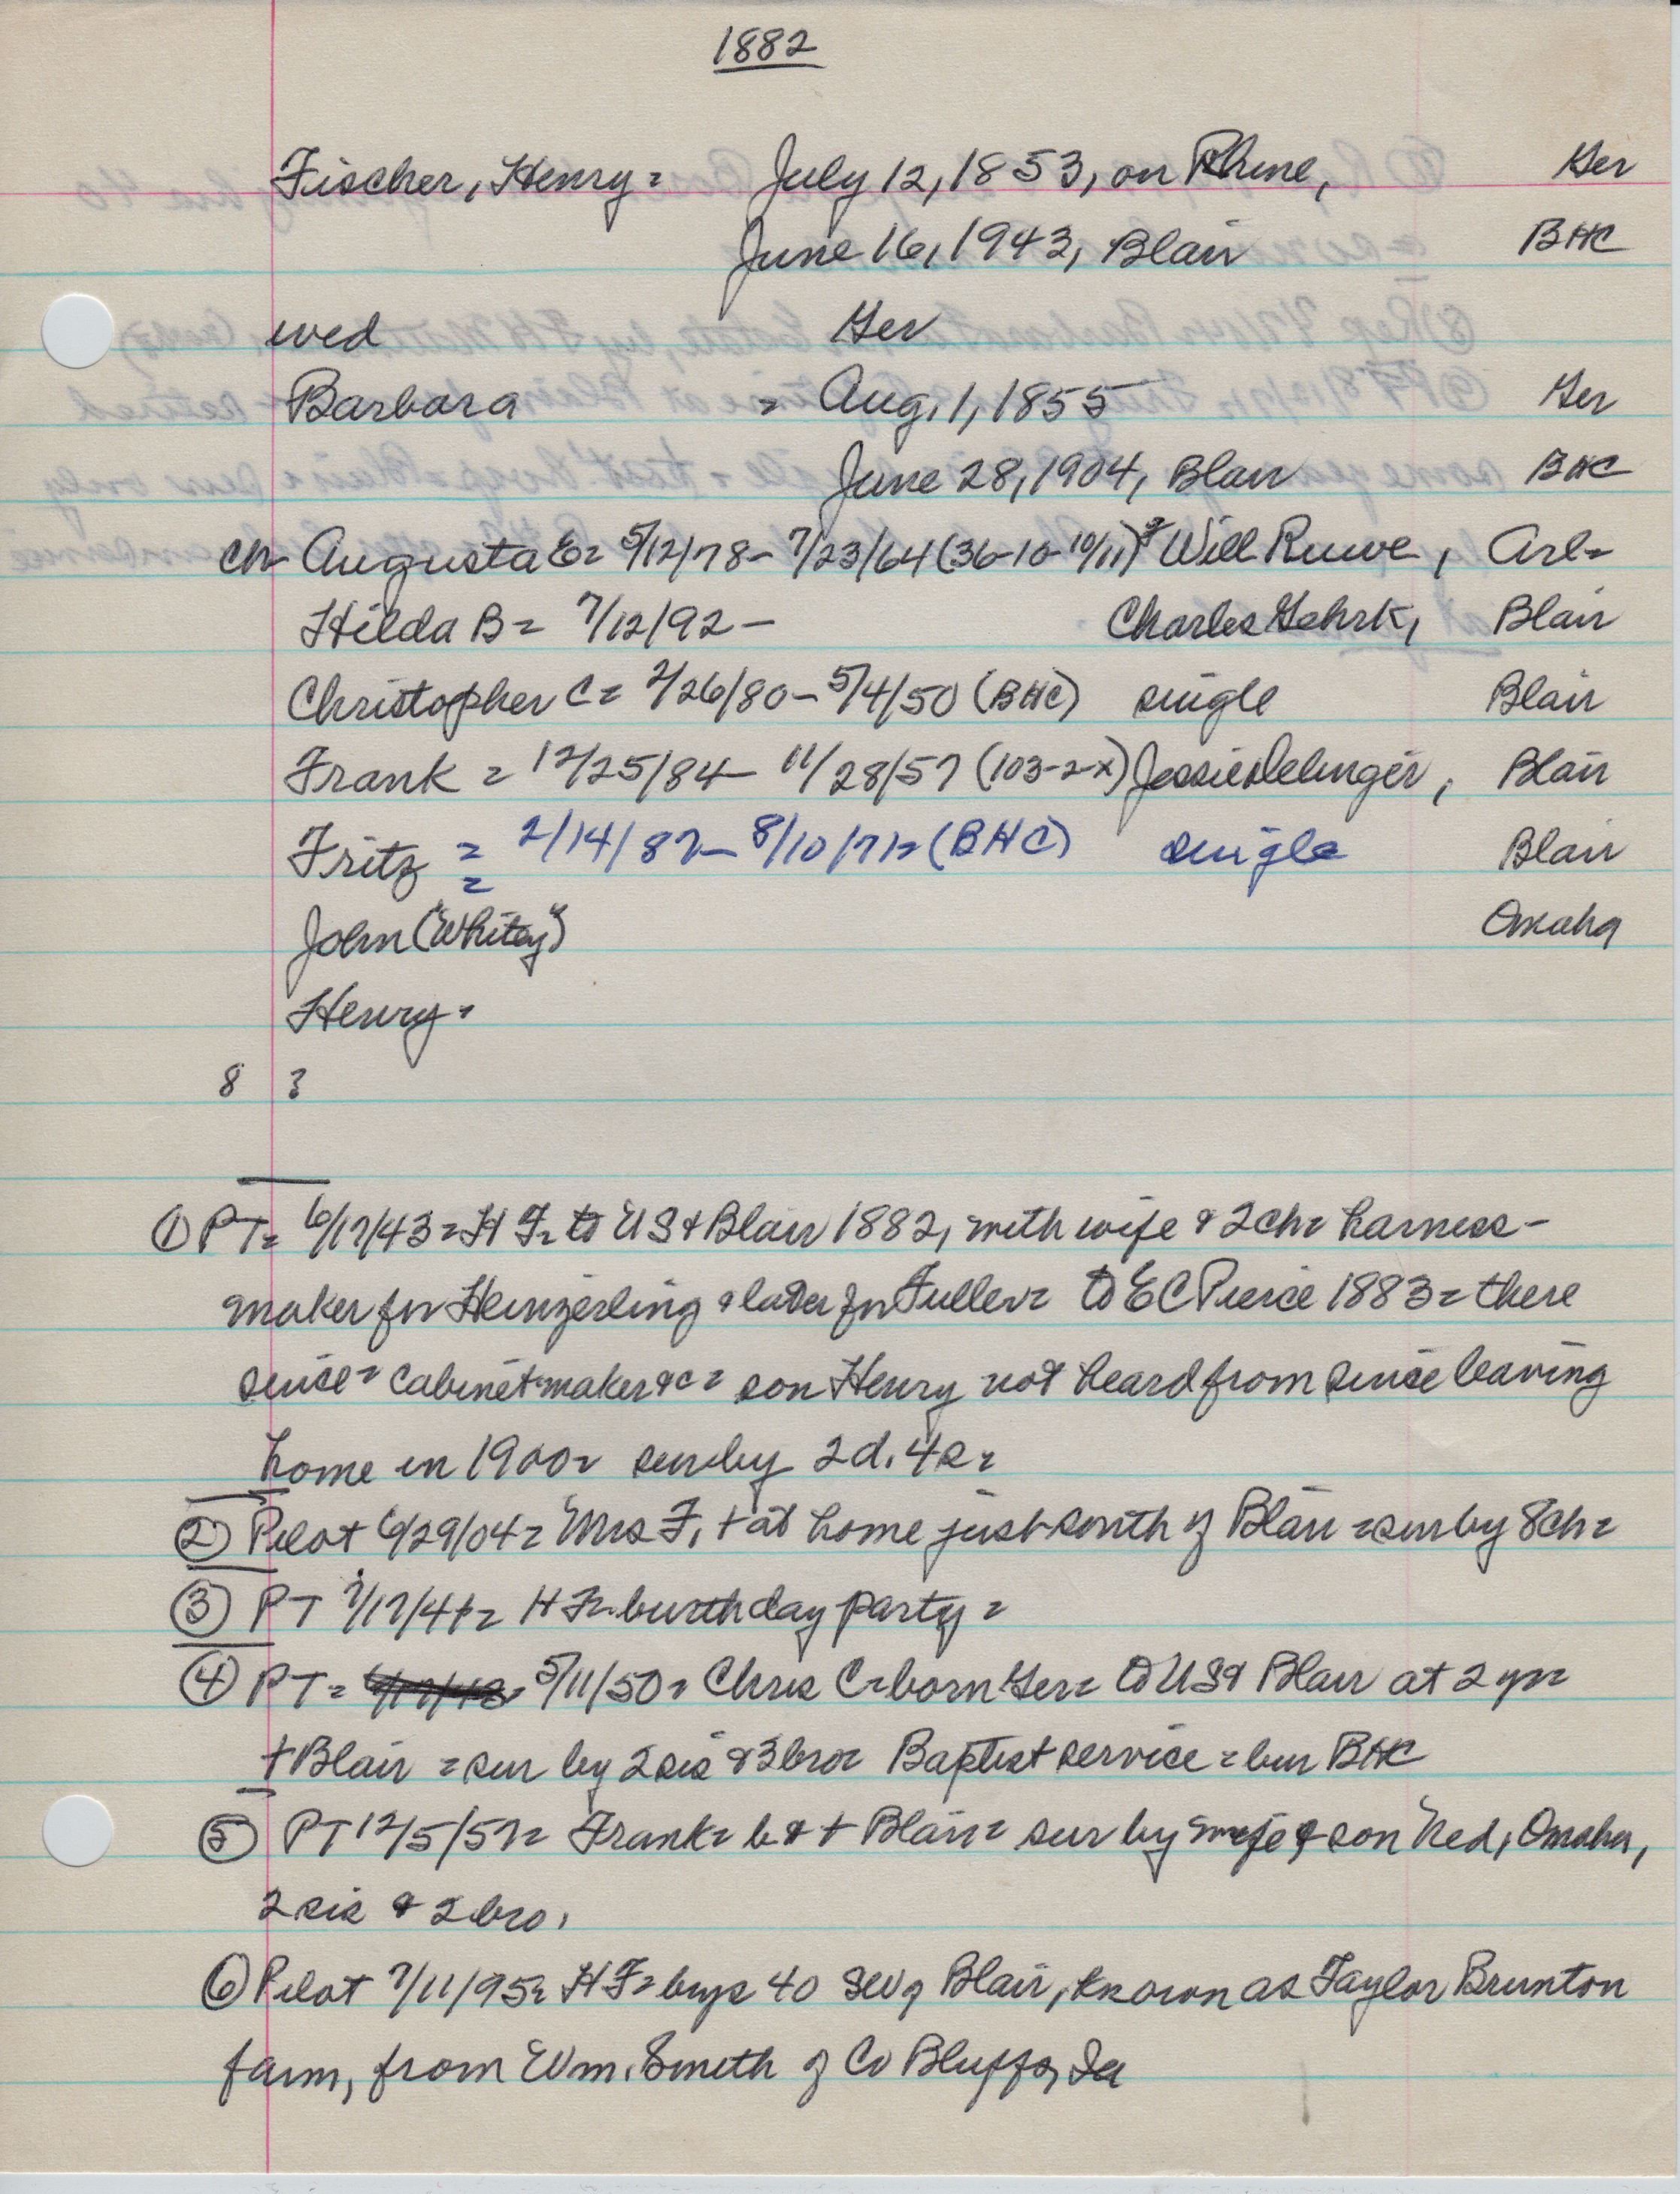 1882
Fischer, Henry = July 12, 1853, on Rhine, Ger
June 16, 1943, Blair BHC
wed Ger
Barbara = Aug. 1, 1855 Ger
June 28, 1904, Blair BHC
ch Augusta E = 5/12/78 - 7/23/64 (36-10-10/11) Will Ruwe, Arl=
Hilda B = 7/12/92 - Charles Gehrk, Blair
Christopher C = 2/26/80 - 5/4/50 (BHC) single Blair
Frank = 12/25/84 - 11/28/57 (103-2-x) Jessie Delinger, Blair
Fritz = 2/14/87 - 8/10/71 = (BHC) single Blair
John ("Whitey") Omaha
Henry =
8 ?
① PT = 6/17/43 = H F = to US & Blair 1882, with wife & 2 ch = harness-
maker for Heinzerling & later for Fuller = to E C Pierce 1883 = there
since = cabinet maker &c = son Henry not heard from since leaving
home in 1900 = sur by 2 d. 4 s =
② Pilot 6/29/04 = Mrs F, + at home just south of Blair = sur by 8 ch =
③ PT 7/17/41 = H F = birthday party =
④ PT = 5/11/50 = Chris C = born Ger = to US & Blair at 2 yr =
+ Blair = sur by 2 sis & 3 bro = Baptist service = bur BHC
⑤ PT 12/5/57 = Frank = b & + Blair = sur by wife & son Ned, Omaha,
2 sis & 2 bro.
⑥ Pilot 7/11/95 = H F = buys 40 SW of Blair, known as Taylor Brunton
farm, from Wm. Smith of Co Bluffs, Ia